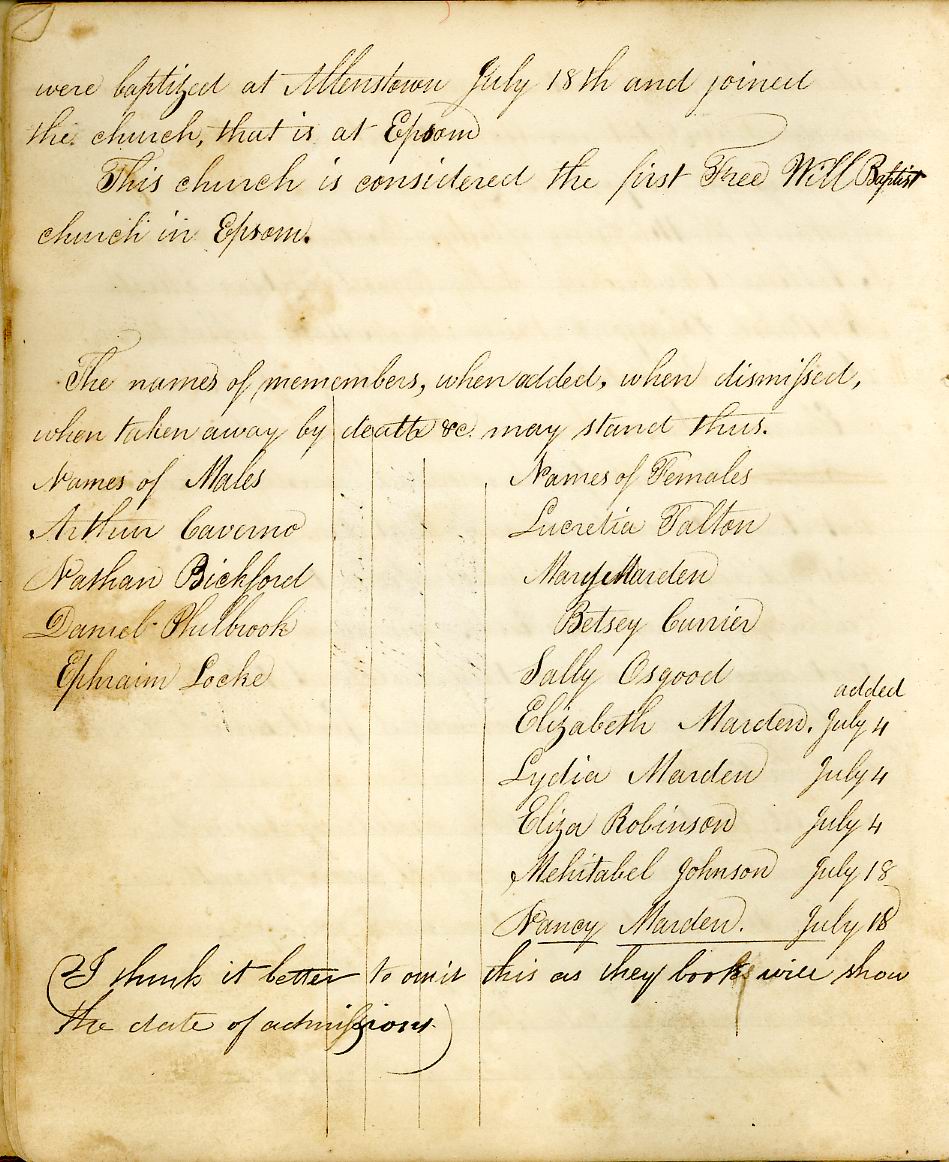 were baptized at Allenstown July 18th and joined
the church, that is at Epsom
This church is considered the first Free Will Baptist
church in Epsom.
The names of memembers, when added, when dismissed,
when taken away by death &c. may stand thus.
Names of Males Names of Females
Arthur Caverno Lucretia Talton
Nathan Bickford Mary Marden
Daniel Philbrook Betsey Currier
Ephraim Locke Sally Osgood
added
Elizabeth Marden. July 4
Lydia Marden July 4
Eliza Robinson July 4
Mehitabel Johnson July 18
Nancy Marden. July 18
(I think it better to omit this as they books will show
the date of admissions.)